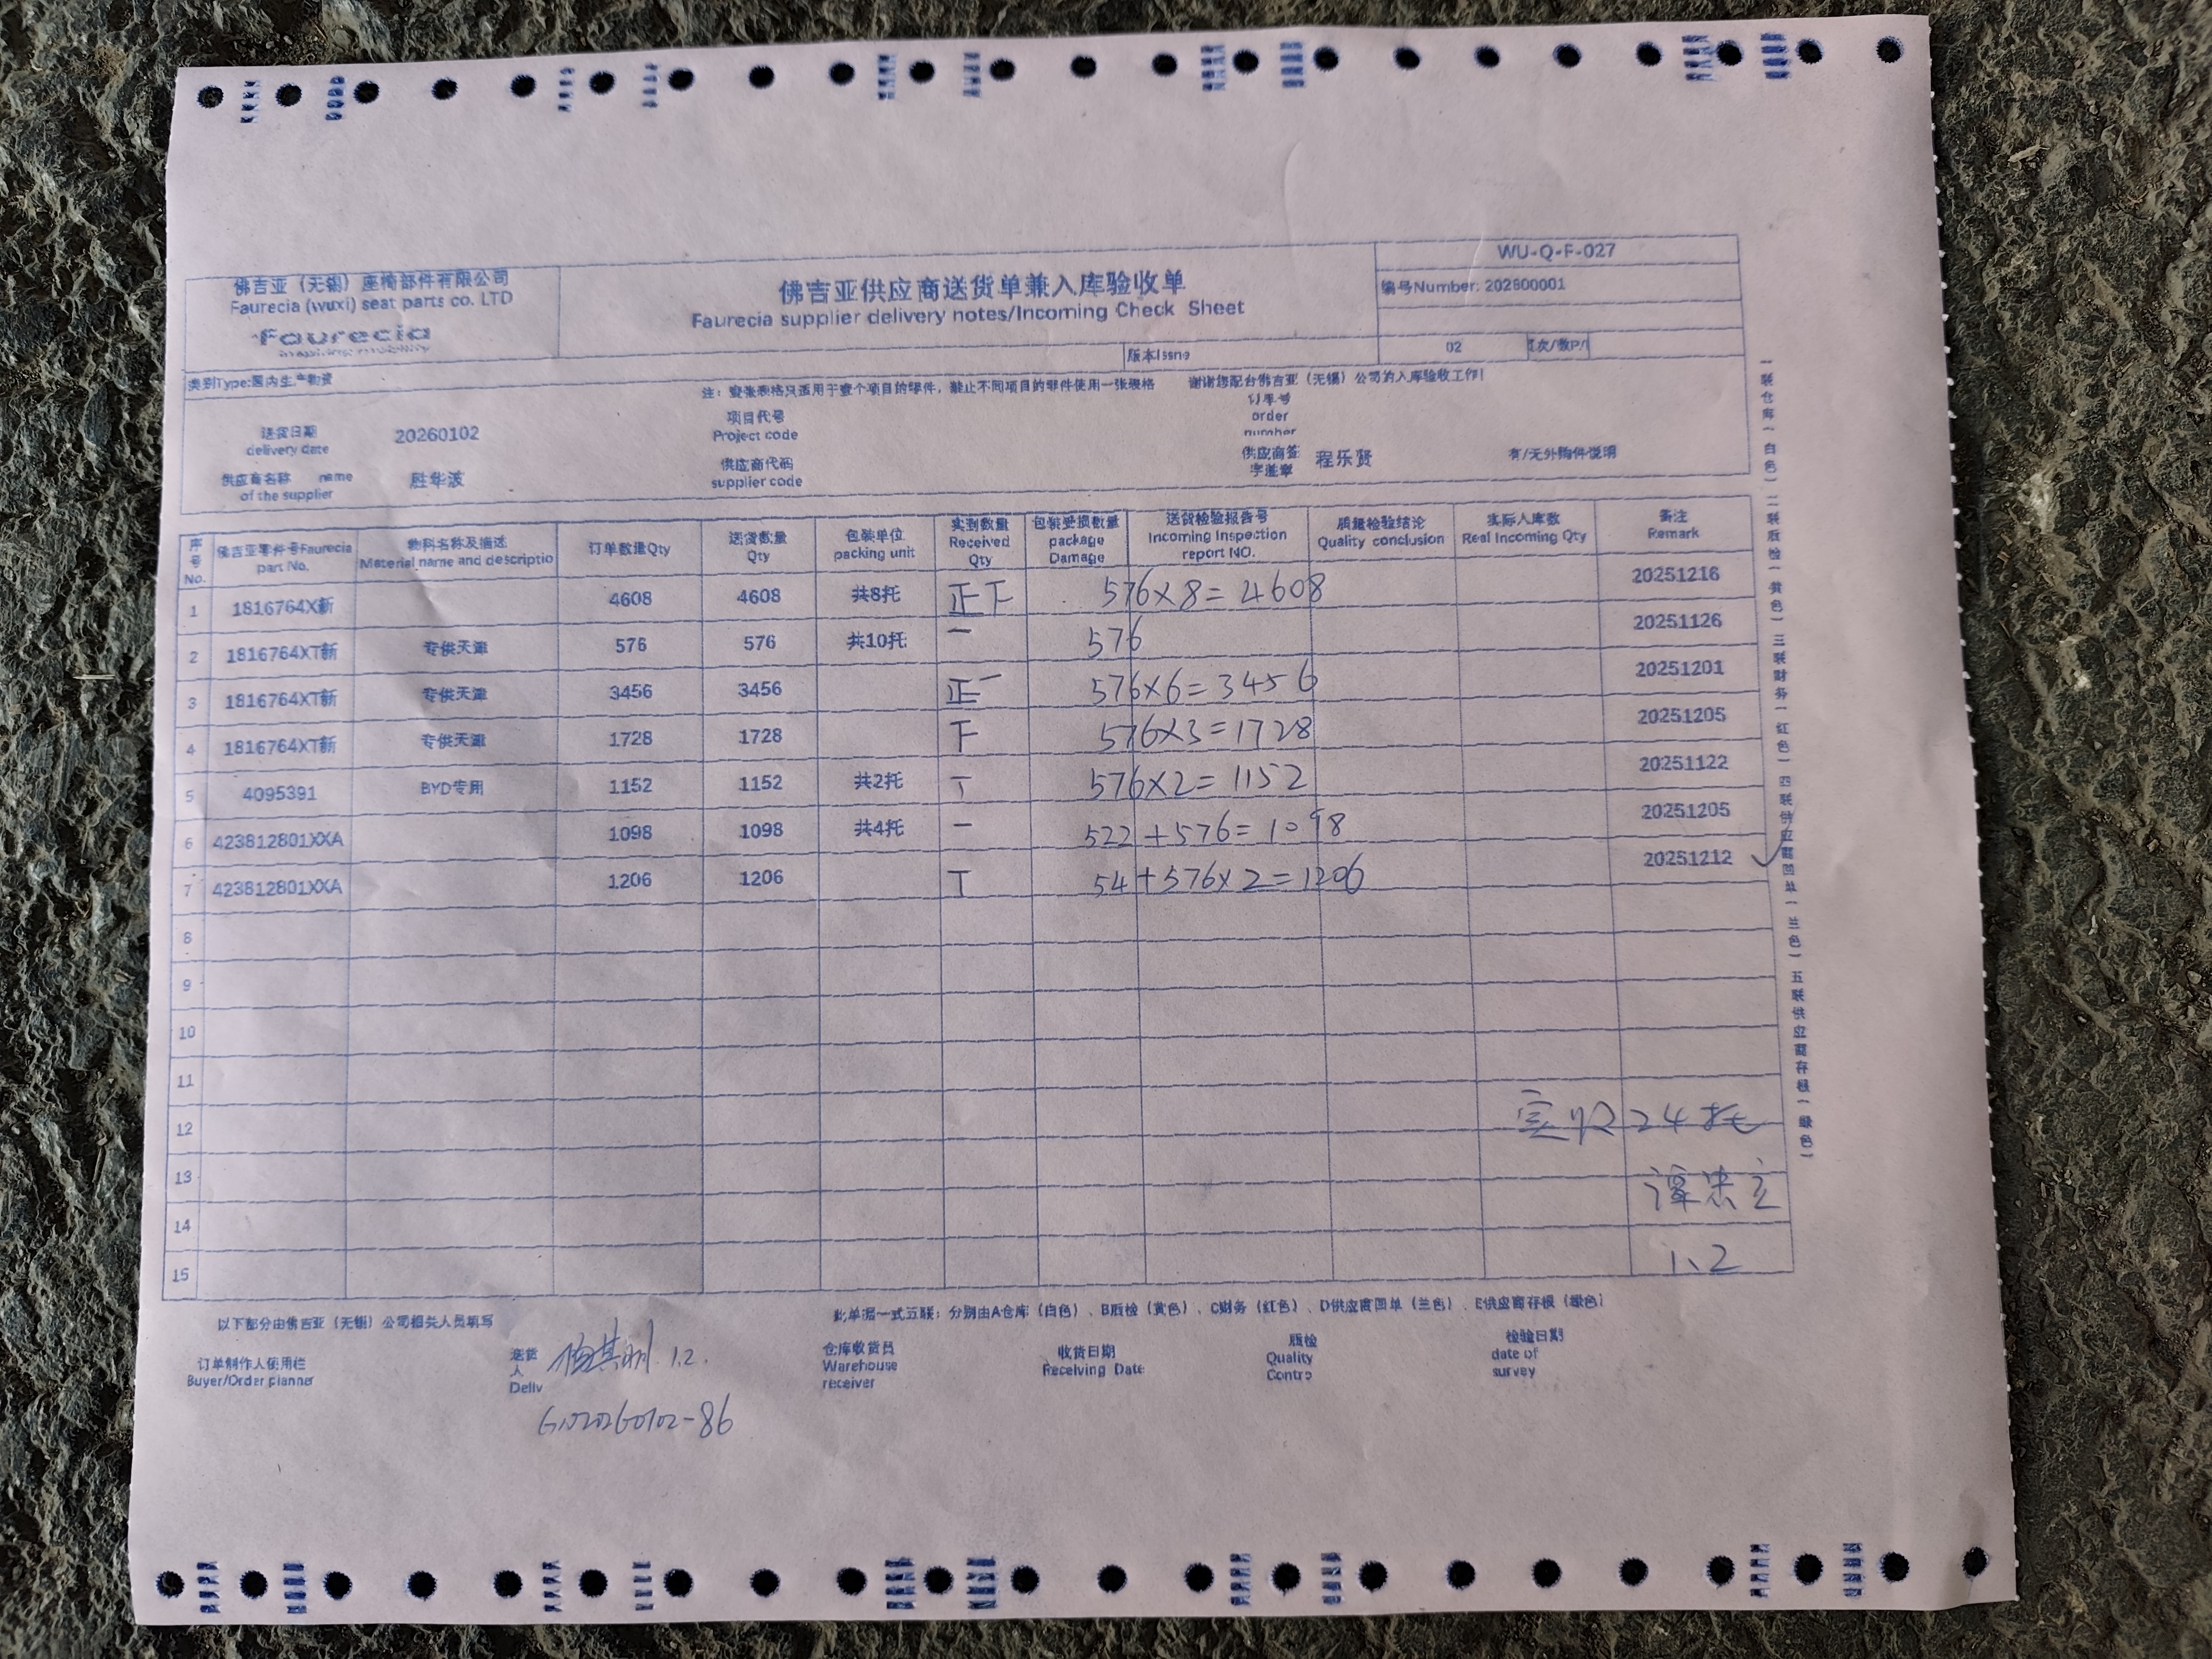 WU-Q-F-027
佛吉亚（无锡）座椅部件有限公司
Faurecia (wuxi) seat parts co. LTD
faurecia
inspiring mobility
佛吉亚供应商送货单兼入库验收单
Faurecia supplier delivery notes/Incoming Check Sheet
编号Number: 202600001
版本Issne 02
类别Type:国内生产物资
注：壹张表格只适用于壹个项目的零件，禁止不同项目的零件使用一张表格 谢谢您配合佛吉亚（无锡）公司的入库验收工作！
送货日期 delivery date 20260102 项目代号 Project code 订单号 order number
供应商名称 name of the supplier 胜华波 供应商代码 supplier code 供应商签字盖章 程乐贤 有/无外购件说明
序号 No. 佛吉亚零件号Faurecia part No. 物料名称及描述 Material name and descriptio 订单数量Qty 送货数量 Qty 包装单位 packing unit 实到数量 Received Qty 包装受损数量 package Damage 送货检验报告号 Incoming Inspection report NO. 质量检验结论 Quality conclusion 实际入库数 Real Incoming Qty 备注 Remark
1 1816764X新 4608 4608 共8托 正下 576×8=4608 20251216
2 1816764XT新 专供天津 576 576 共10托 一 576 20251126
3 1816764XT新 专供天津 3456 3456 正一 576×6=3456 20251201
4 1816764XT新 专供天津 1728 1728 下 576×3=1728 20251205
5 4095391 BYD专用 1152 1152 共2托 丅 576×2=1152 20251122
6 423812801XXA 1098 1098 共4托 一 522+576=1098 20251205
7 423812801XXA 1206 1206 丅 54+576×2=1206 20251212
8
9
10
11
12 实收24托
13
14
15 1.2
一联仓库（白色）二联质检（黄色）三联财务（红色）四联供应商回单（兰色）五联供应商存根（绿色）
此单据一式五联：分别由A仓库（白色）、B质检（黄色）、C财务（红色）、D供应商回单（兰色）、E供应商存根（绿色）
以下部分由佛吉亚（无锡）公司相关人员填写
订单制作人使用栏 Buyer/Order planner 送货人 Deliv 1.2. 仓库收货员 Warehouse receiver 收货日期 Receiving Date 质检 Quality Contro 检验日期 date of survey